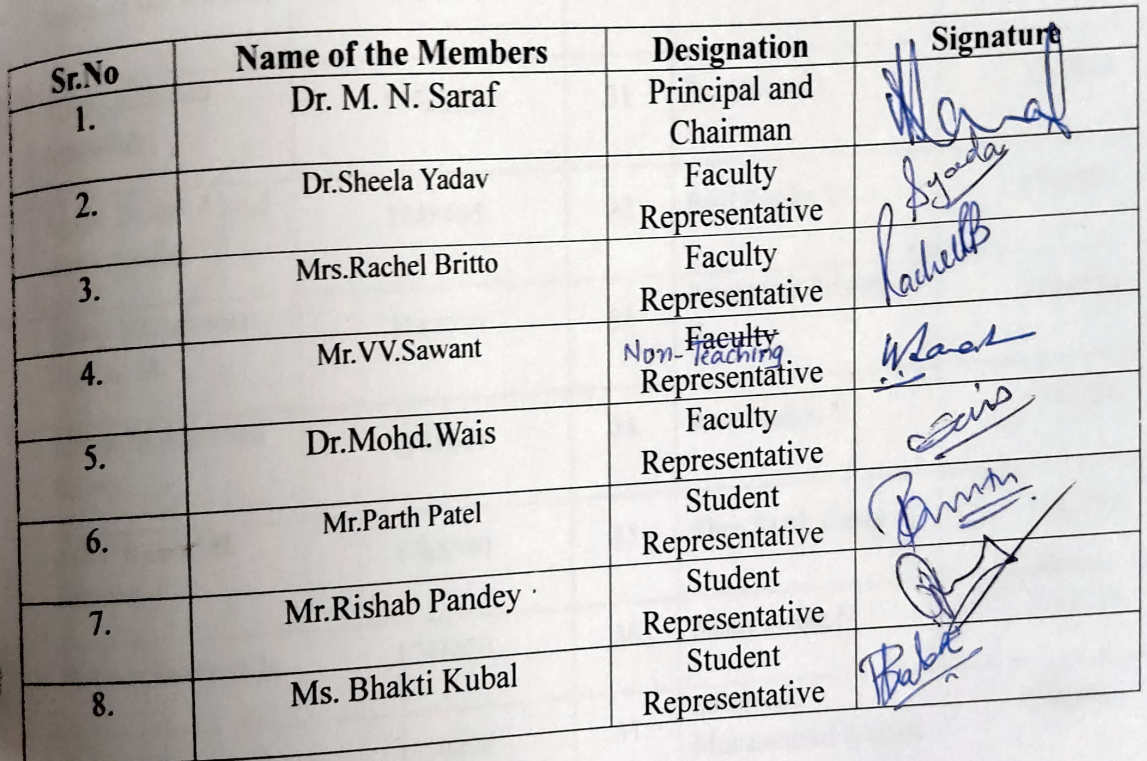 Sr.No Name of the Members Designation Signature
1. Dr. M. N. Saraf Principal and
Chairman
2. Dr.Sheela Yadav Faculty
Representative
3. Mrs.Rachel Britto Faculty
Representative
4. Mr.VV.Sawant Faculty
Non-Teaching
Representative
5. Dr.Mohd.Wais Faculty
Representative
6. Mr.Parth Patel Student
Representative
7. Mr.Rishab Pandey Student
Representative
8. Ms. Bhakti Kubal Student
Representative